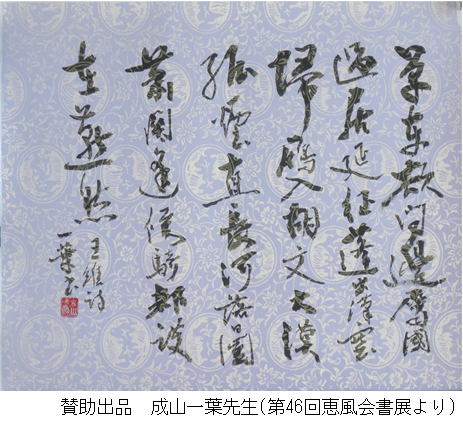 單車欲問邊屬國
過居延征蓬出漢塞
歸鴈入胡天大漠
孤煙直長河落日圓
蕭關逢候騎都護
在燕然
王維詩
一葉書
賛助出品　成山一葉先生(第46回恵風会書展より)